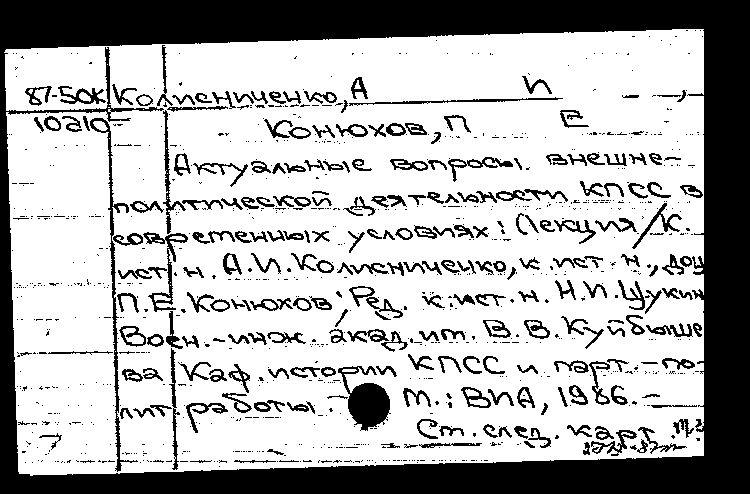 87-50К Колисниченко, А И ,
10210 Конюхов, П Е
Актуальные вопросы внешне-
политической деятельности КПСС в
современных условиях: (Лекция / К.
ист. н. А.И. Колисниченко, к. ист. н., доц
П.Е. Конюхов; Ред. к. ист. н. Н.И. Щукин
Воен.-инж. акад. им. В.В. Куйбыше
ва Каф. истории КПСС и парт.-по-
лит. работы. - М.: ВИА, 1986. -
Ст. след. карт.